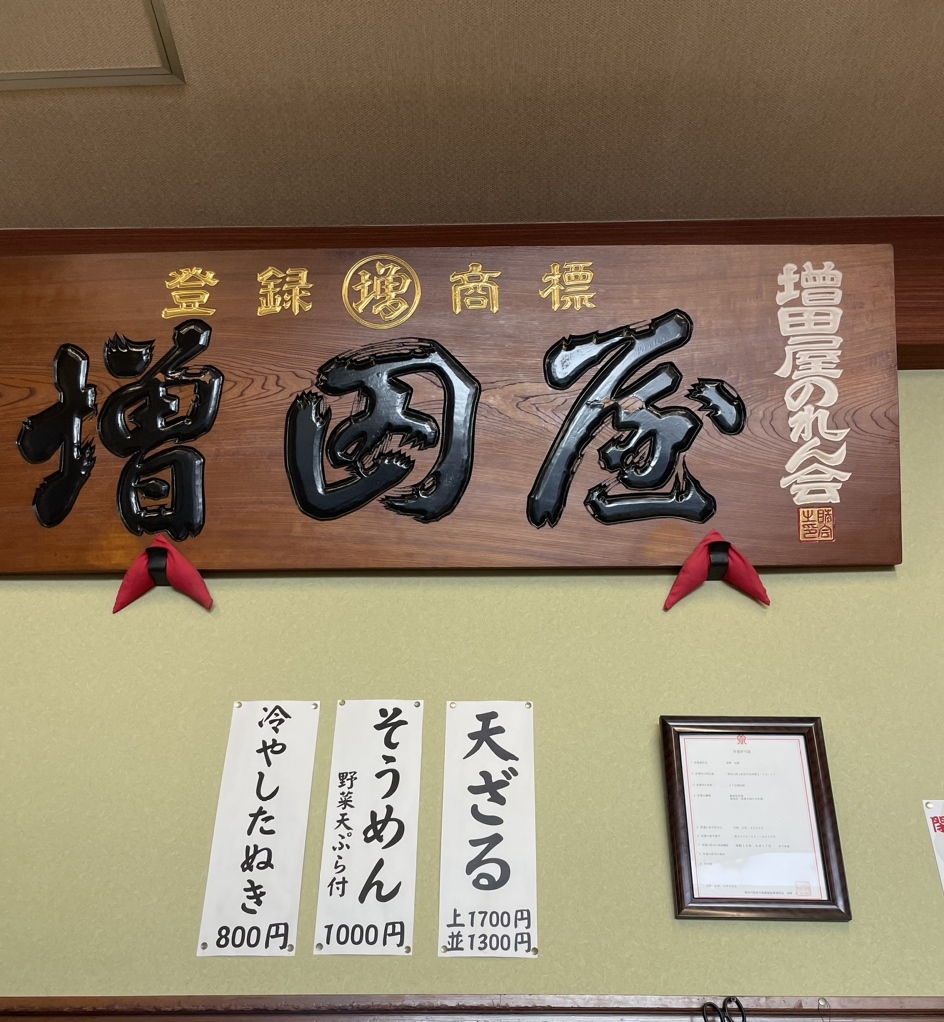 登録 増 商標
増田屋
増田屋のれん会
天ざる
上1700円
並1300円
そうめん
野菜天ぷら付
1000円
冷やしたぬき
800円